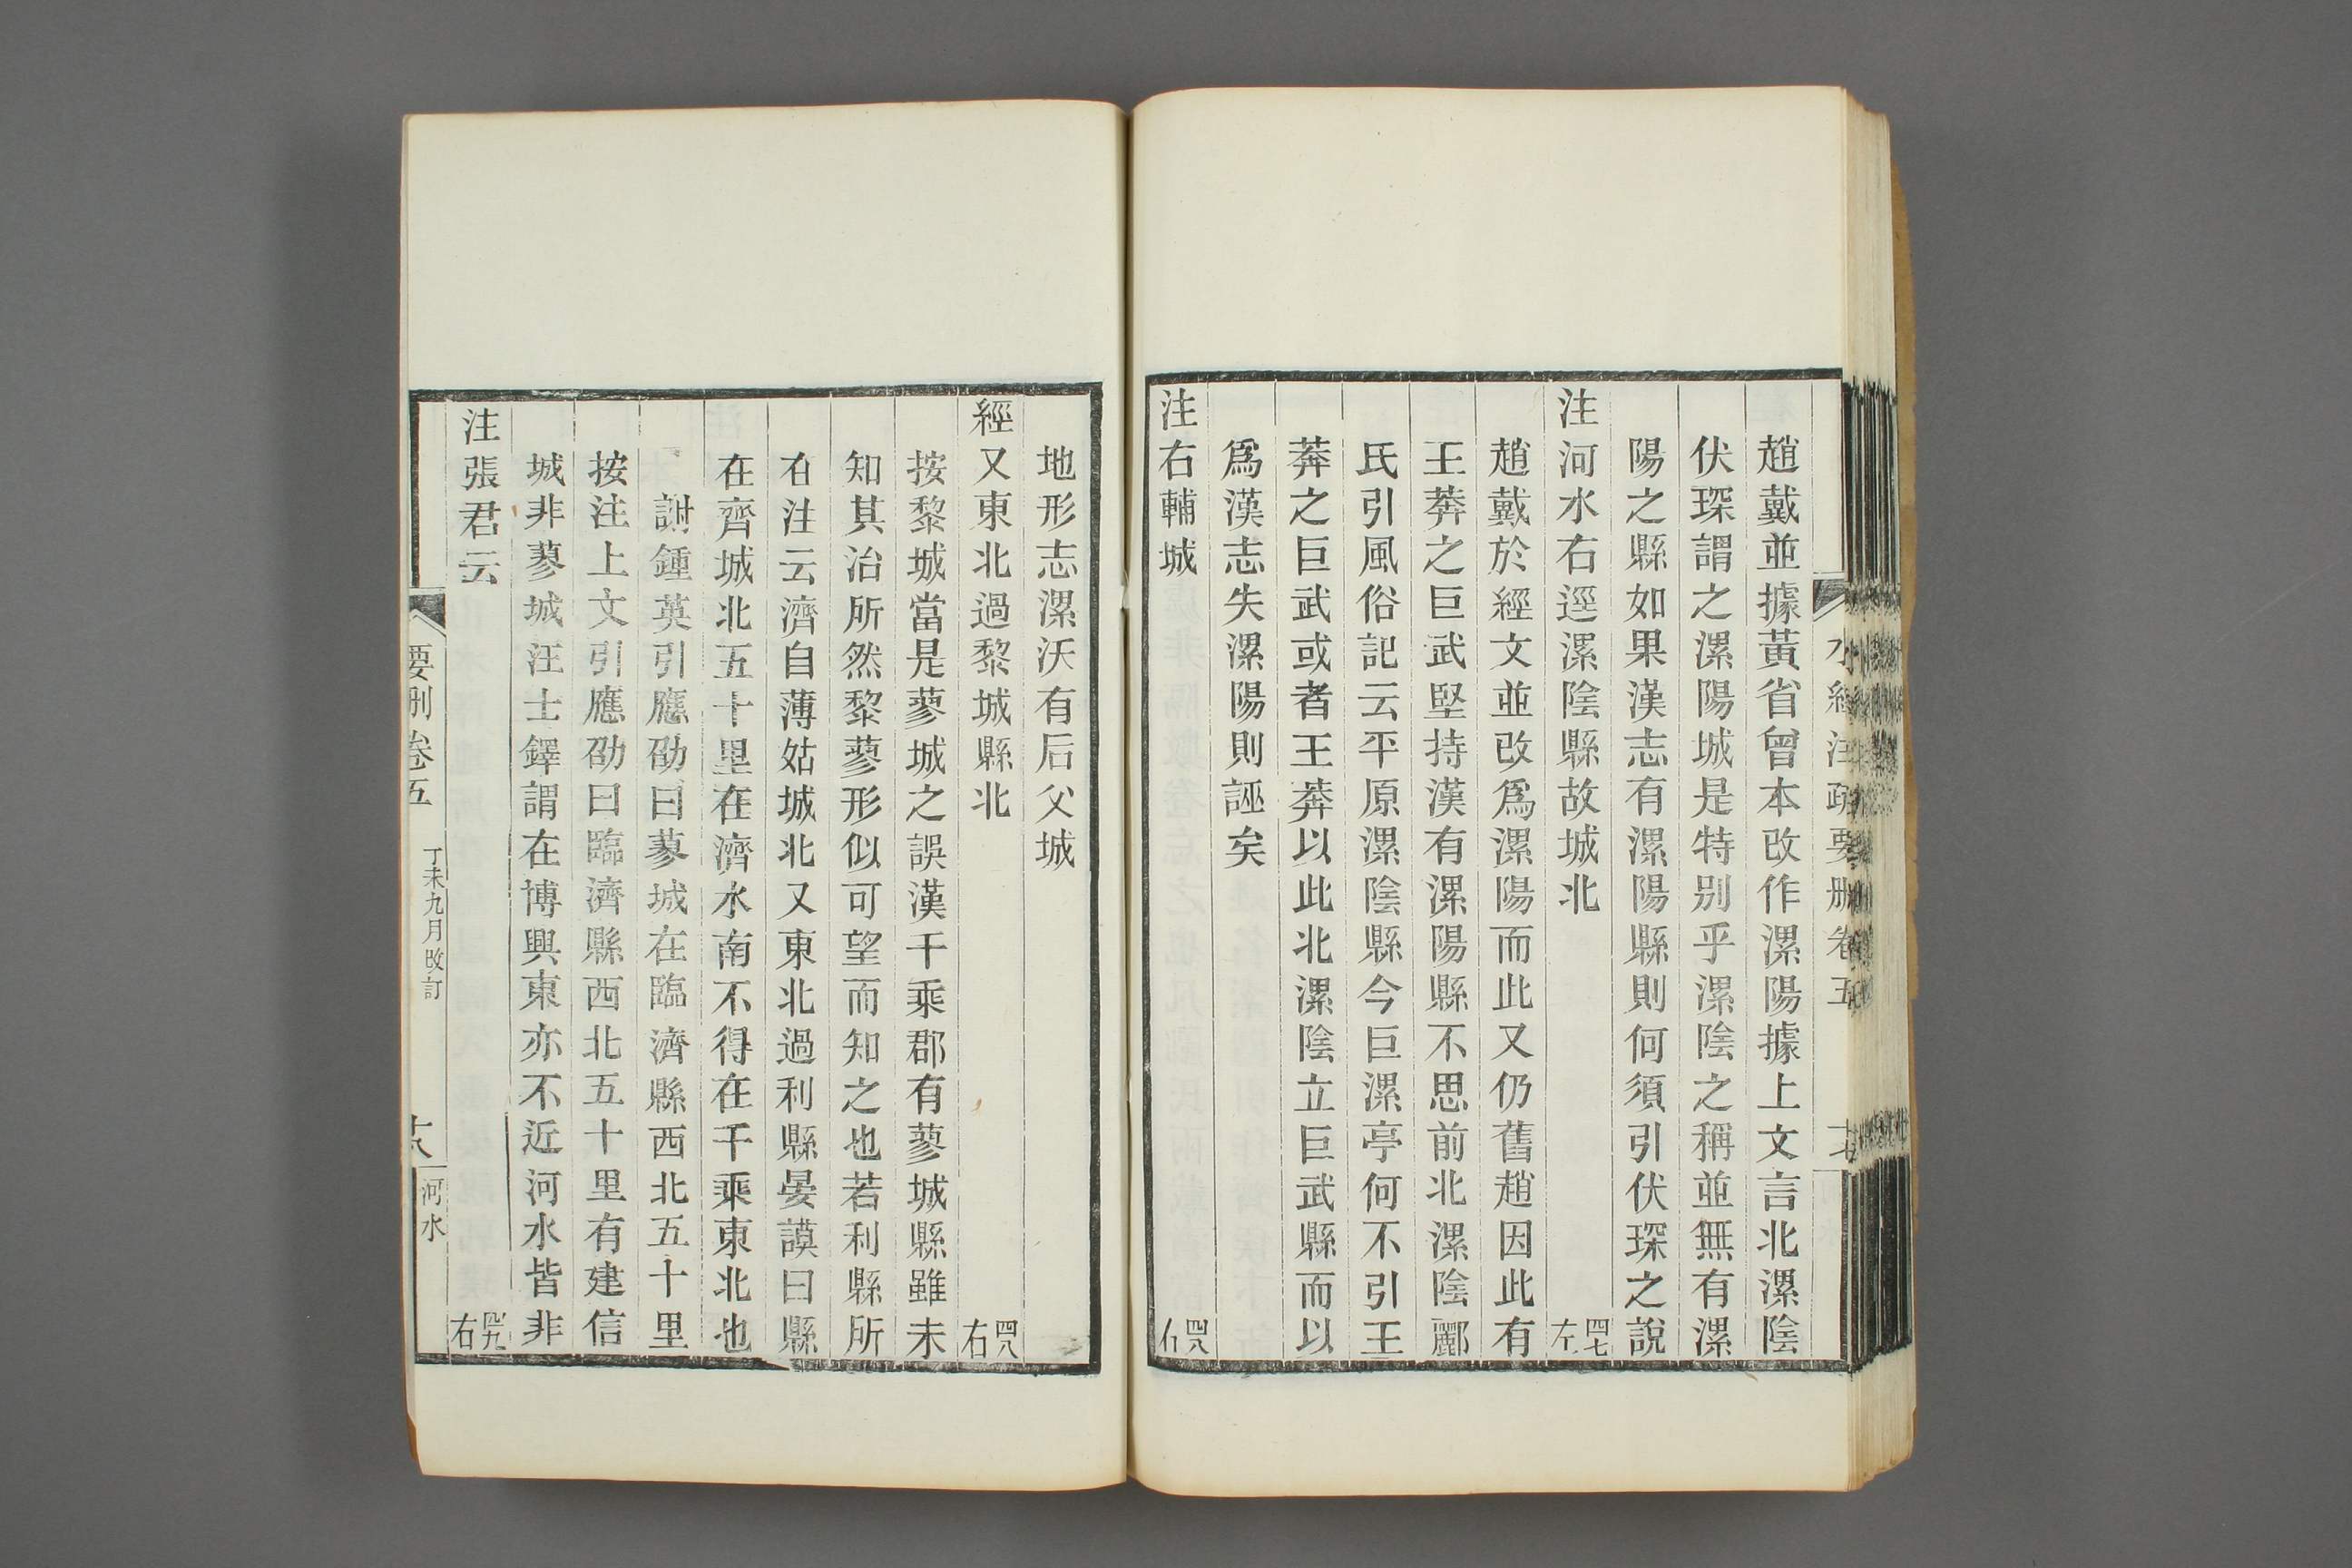 水經注疏要刪卷五
趙戴並據黃省曾本改作漯陽據上文言北漯陰
伏琛謂之漯陽城是特別乎漯陰之稱並無有漯
陽之縣如果漢志有漯陽縣則何須引伏琛之說
注河水右逕漯陰縣故城北 四七左
趙戴於經文並改爲漯陽而此又仍舊趙因此有
王莽之巨武堅持漢有漯陽縣不思前北漯陰酈
氏引風俗記云平原漯陰縣今巨漯亭何不引王
莽之巨武或者王莽以此北漯陰立巨武縣而以
爲漢志失漯陽則誣矣
注右輔城 四八右
地形志漯沃有后父城
經又東北過黎城縣北 四八右
按黎城當是蓼城之誤漢千乘郡有蓼城縣雖未
知其治所然黎蓼形似可望而知之也若利縣所
在注云濟自薄姑城北又東北過利縣晏謨曰縣
在齊城北五十里在濟水南不得在千乘東北也
謝鍾英引應劭曰蓼城在臨濟縣西北五十里
按注上文引應劭曰臨濟縣西北五十里有建信
城非蓼城汪士鐸謂在博興東亦不近河水皆非
注張君云 四九右
要刪卷五 丁未九月改訂 十八 河水